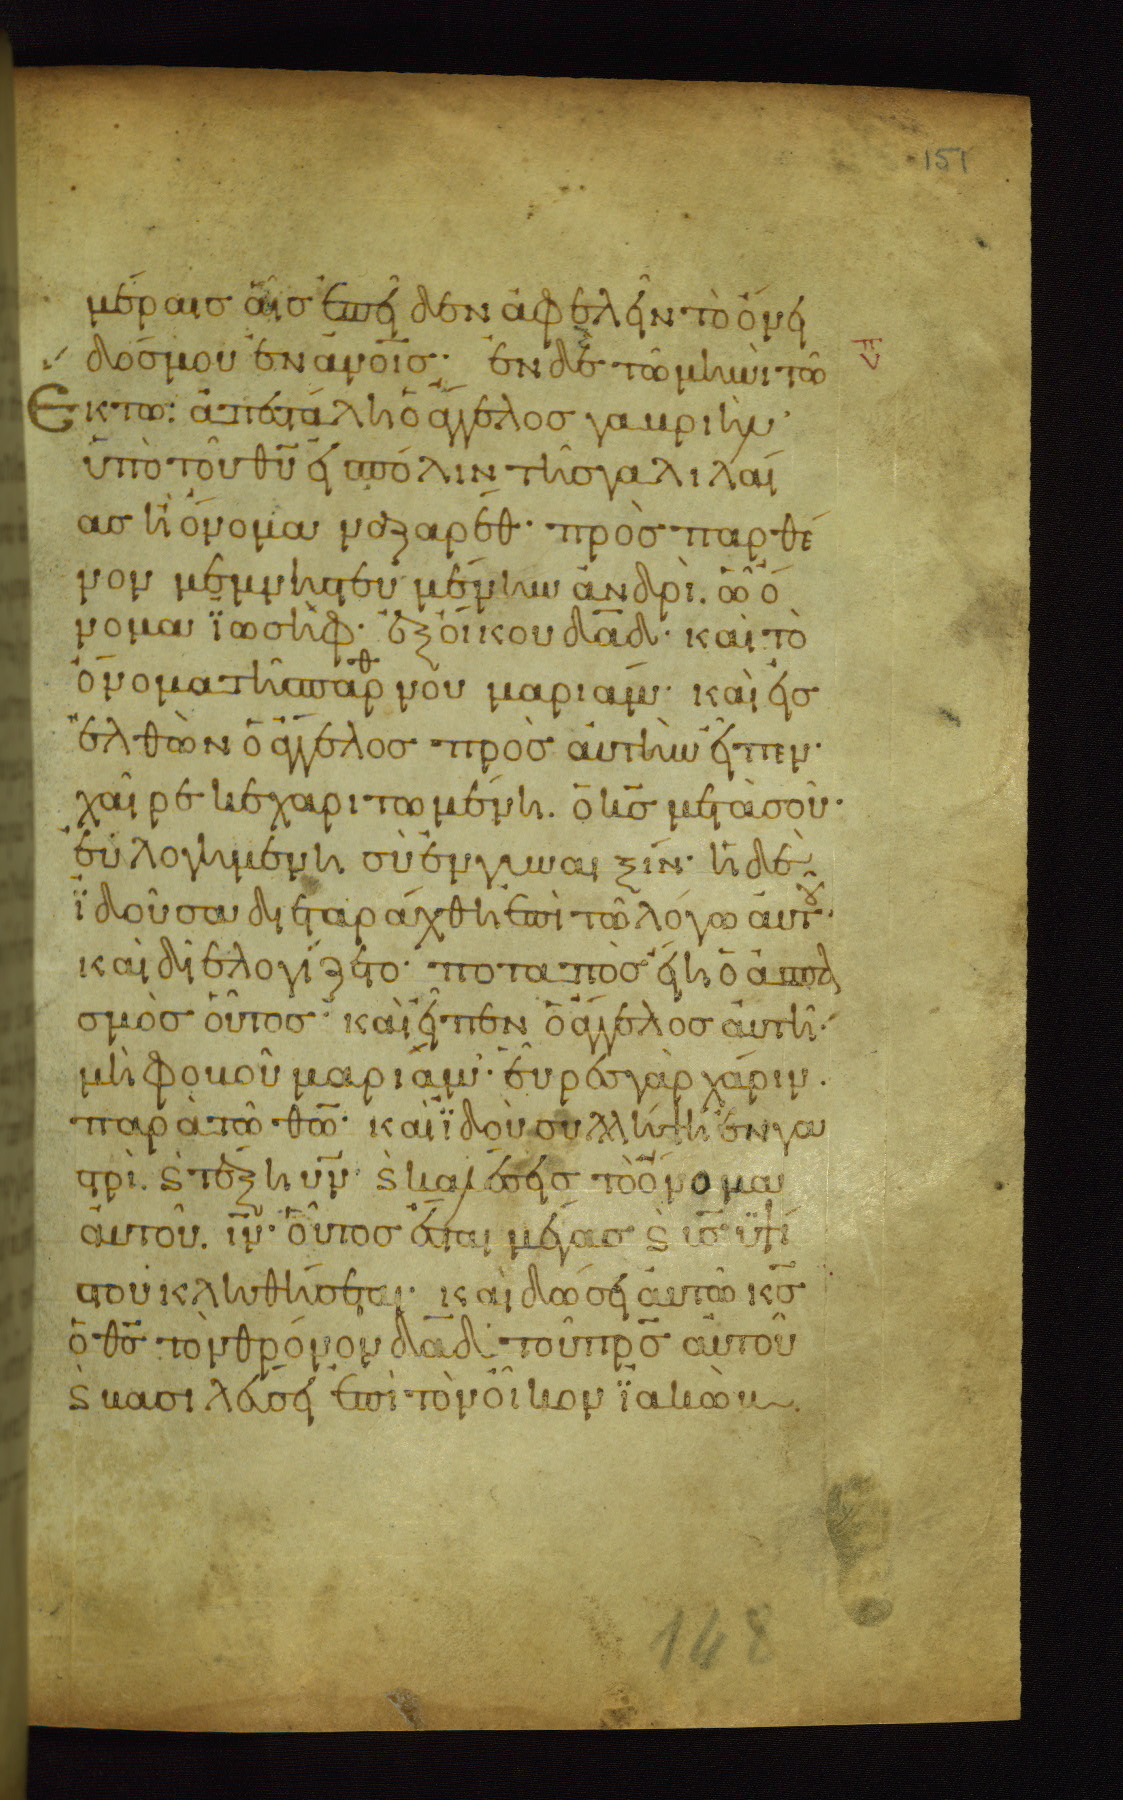 151
μέραις αἷς ἐπεῖδεν ἀφελεῖν τὸ ὄνει
δός μου ἐν ἀνοις· ἐν δὲ τῶ μηνὶ τῶ
Εκτω: ἀπεστάλη ὁ ἄγγελος γαβριὴλ·
ὑπὸ τοῦ θυ εἰς πόλιν τῆς γαλιλαί
ας ἧ ὄνομα ναζαρέθ· πρὸς παρθέ
νον μεμνηστευμένην ἀνδρὶ. ὧ ὄ
νομα ϊωσὴφ· ἐξ οἴκου δαδ· καὶ τὸ
ὄνομα τῆς παρθνου μαριάμ· καὶ εἰσ
ελθὼν ὁ ἄγγελος πρὸς αὐτὴν εἶπεν·
χαῖρε κεχαριτωμένη. ὁ κς μετὰ σοῦ·
εὐλογημένη σὺ ἐν γυναιξίν· ἡ δὲ
ϊδοῦσα διεταράχθη ἐπὶ τῶ λόγω αὐτοῦ·
καὶ διελογίζετο· ποταπὸς εἴη ὁ ἀσπα
σμὸς οὗτος· καὶ εἶπεν ὁ ἄγγελος αὐτῆ·
μὴ φοβοῦ μαριάμ· εὗρες γὰρ χάριν.
παρὰ τῶ θω· καὶ ϊδοὺ συλλήψη ἐν γα
στρὶ. ϛ τέξη υν· ϛ καλέσεις τὸ ὄνομα
αὐτοῦ. ιν· οὗτος ἔσται μέγας ϛ υς ὑψί
στου κληθήσεται· καὶ δώσει αὐτῶ κς
ὁ θς τὸν θρόνον δαδ τοῦ πρς αὐτοῦ
ϛ βασιλεύσει ἐπὶ τὸν οἶκον ϊακὼβ
148